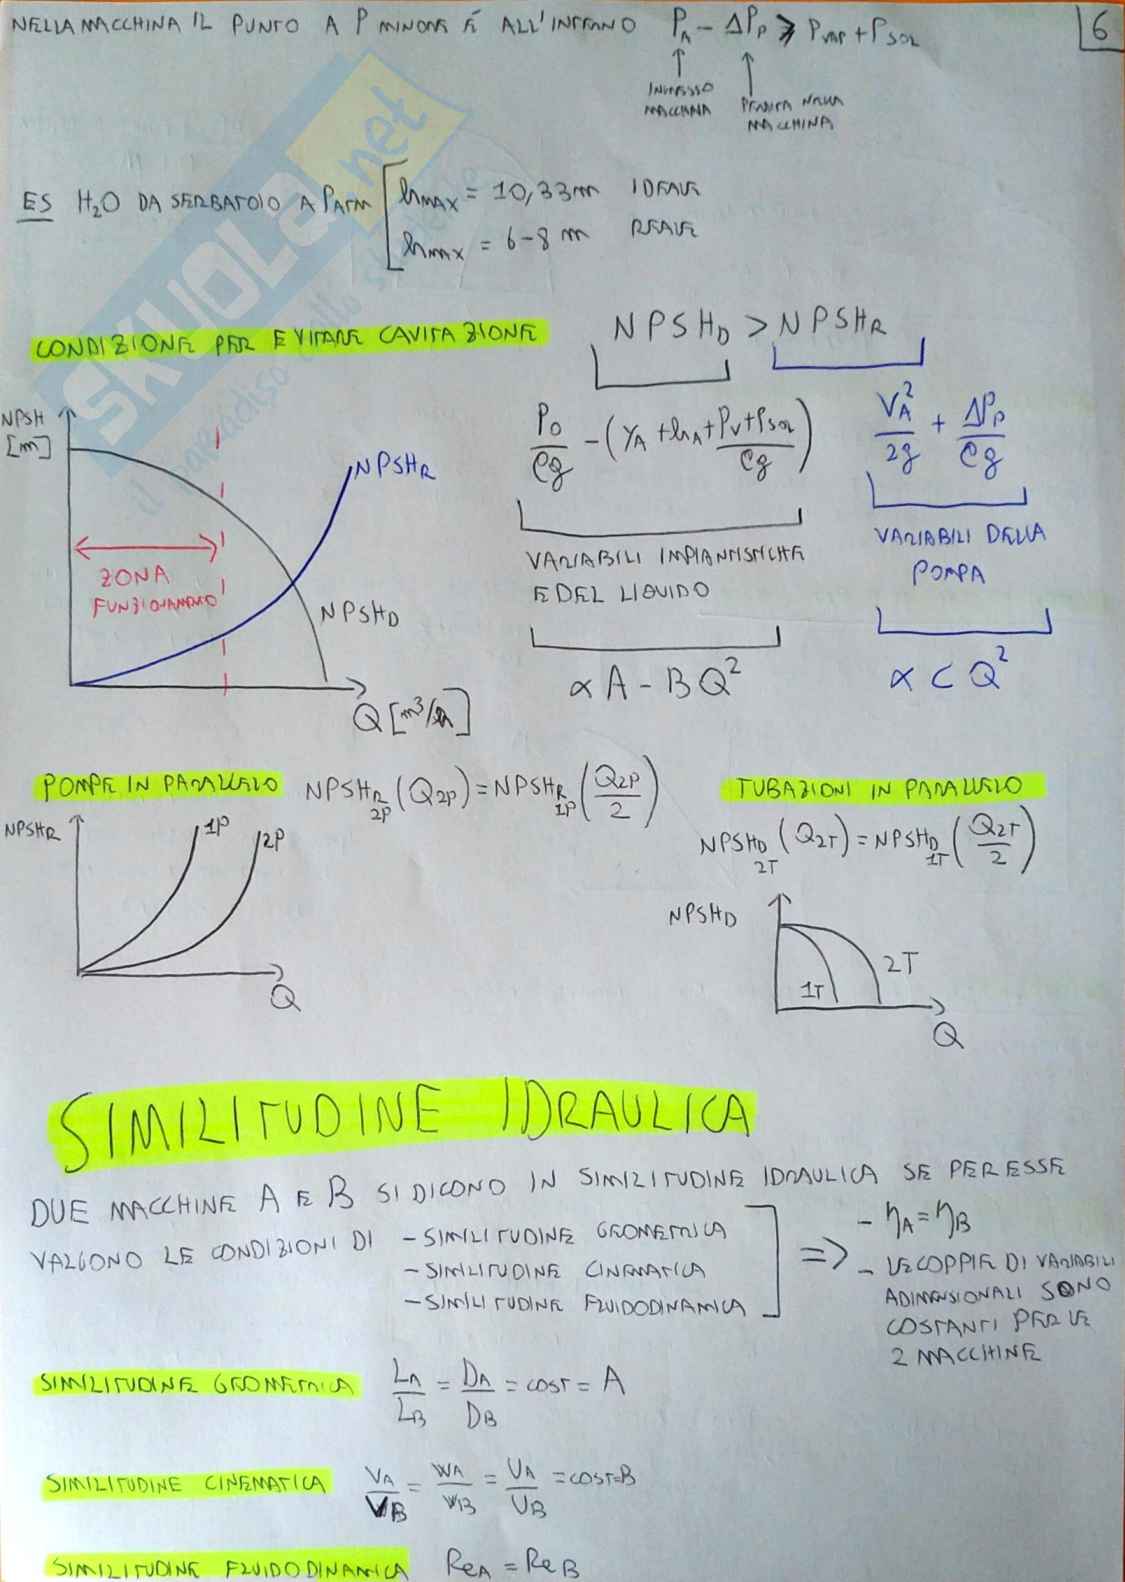 NELLA MACCHINA IL PUNTO A P MINORE È ALL'INTERNO P_A - ΔP_P ≥ P_VAP + P_SOL
6
INGRESSO MACCHINA
PERDITA NELLA MACCHINA
ES H₂O DA SERBATOIO A P_ATM
h_MAX = 10,33 m IDEALE
h_max = 6-8 m REALE
CONDIZIONE PER EVITARE CAVITAZIONE
NPSH_D > NPSH_R
P_0/ρg - (Y_A + h_A + P_V + P_SOL/ρg)
V_A²/2g + ΔP_P/ρg
VARIABILI IMPIANTISTICHE
E DEL LIQUIDO
VARIABILI DELLA
POMPA
∝ A - BQ²
∝ C Q²
NPSH
[m]
NPSH_R
ZONA
FUNZIONAMENTO
NPSH_D
Q [m³/h]
POMPE IN PARALLELO NPSH_R 2P (Q_2P) = NPSH_R 1P (Q_2P/2)
NPSH_R
1P
2P
Q
TUBAZIONI IN PARALLELO
NPSH_D 2T (Q_2T) = NPSH_D 1T (Q_2T/2)
NPSH_D
1T
2T
Q
SIMILITUDINE IDRAULICA
DUE MACCHINE A E B SI DICONO IN SIMILITUDINE IDRAULICA SE PER ESSE
VALGONO LE CONDIZIONI DI - SIMILITUDINE GEOMETRICA
- SIMILITUDINE CINEMATICA
- SIMILITUDINE FLUIDODINAMICA
=> - η_A = η_B
- LE COPPIE DI VARIABILI
ADIMENSIONALI SONO
COSTANTI PER LE
2 MACCHINE
SIMILITUDINE GEOMETRICA L_A/L_B = D_A/D_B = COST = A
SIMILITUDINE CINEMATICA V_A/V_B = W_A/W_B = U_A/U_B = COST = B
SIMILITUDINE FLUIDODINAMICA Re_A = Re_B
SKUOLA.net
il paradiso dello studente